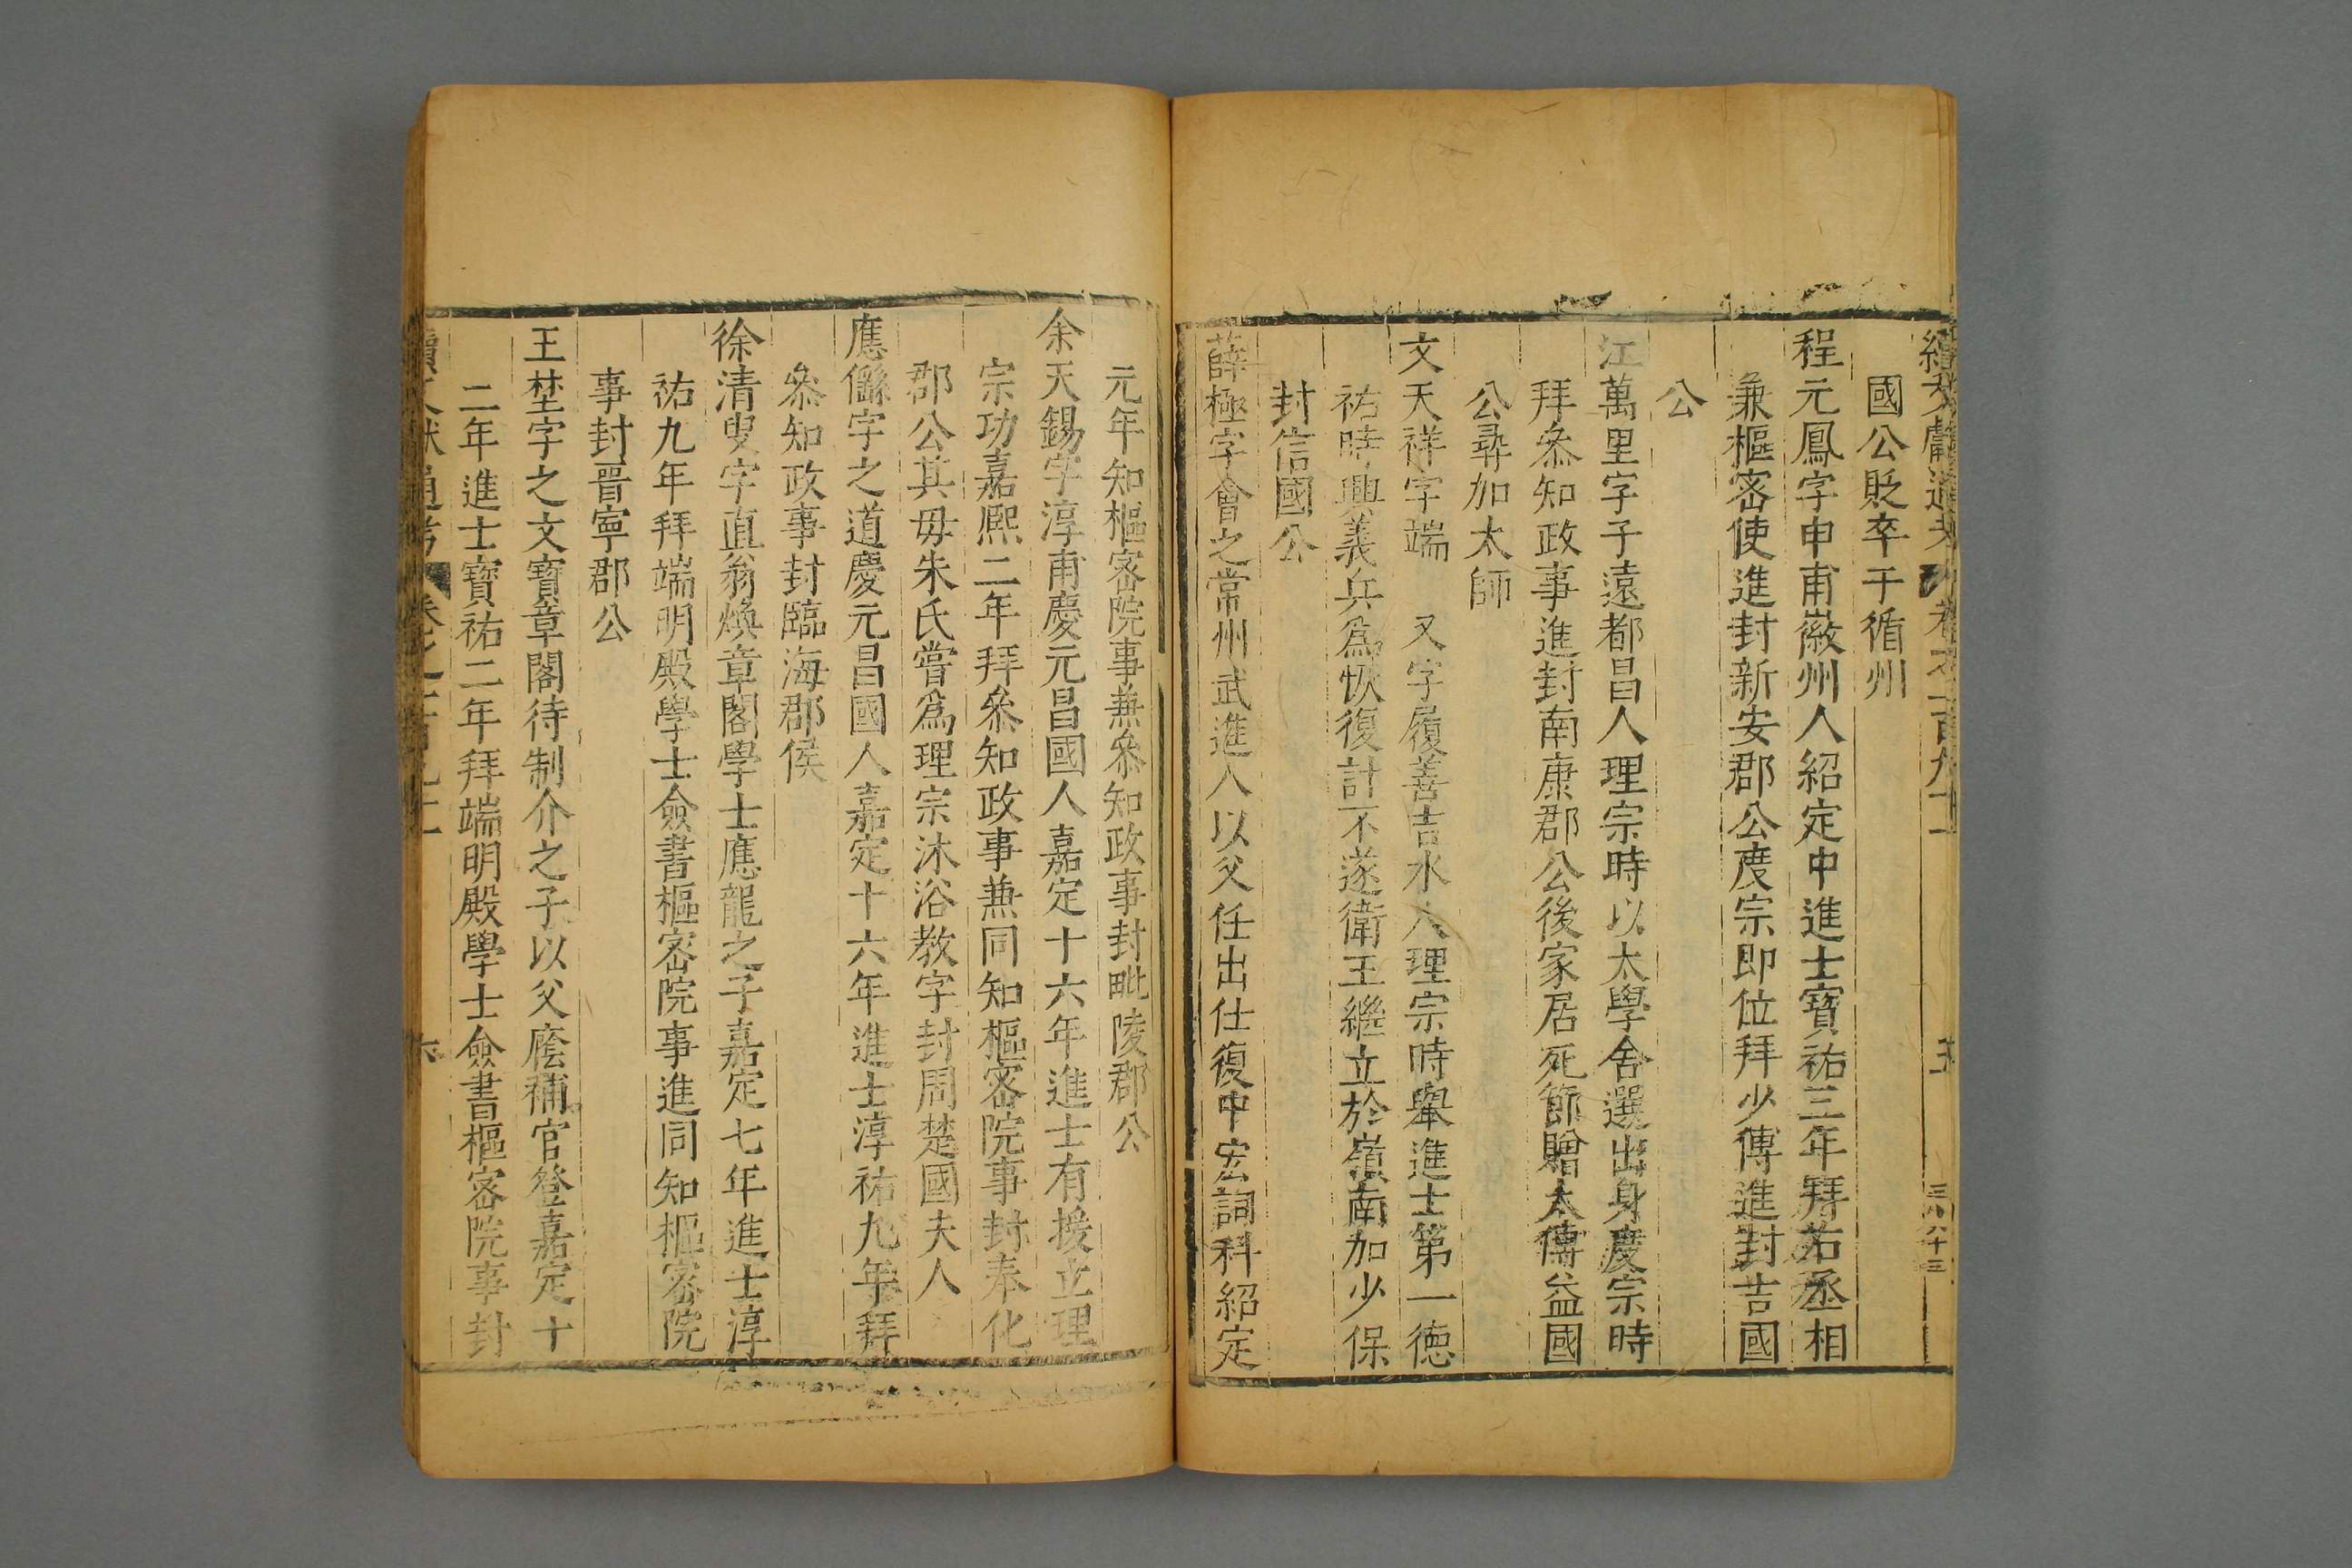 國公貶卒于循州
程元鳳字申甫徽州人紹定中進士寶祐三年拜右丞相
兼樞密使進封新安郡公度宗即位拜少傅進封吉國
公
江萬里字子遠都昌人理宗時以太學舍選出身度宗時
拜叅知政事進封南康郡公後家居死節贈太傅益國
公尋加太師
文天祥字端 又字履善吉水人理宗時舉進士第一德
祐時興義兵爲恢復計不遂衛王繼立於嶺南加少保
封信國公
薛極字會之常州武進人以父任出仕復中宏詞科紹定
元年知樞密院事兼叅知政事封毗陵郡公
余天錫字淳甫慶元昌國人嘉定十六年進士有援立理
宗功嘉熙二年拜叅知政事兼同知樞密院事封奉化
郡公其毋朱氏嘗爲理宗沐浴教字封周楚國夫人
應㒡字之道慶元昌國人嘉定十六年進士淳祐九年拜
叅知政事封臨海郡侯
徐清叟字直翁煥章閣學士應龍之子嘉定七年進士淳
祐九年拜端明殿學士僉書樞密院事進同知樞密院
事封晋寧郡公
王埜字之文寶章閣待制介之子以父廕補官登嘉定十
二年進士寶祐二年拜端明殿學士僉書樞密院事封